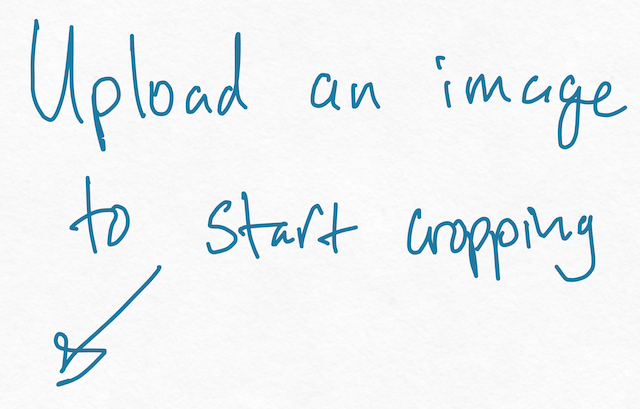 Upload an image
to start cropping